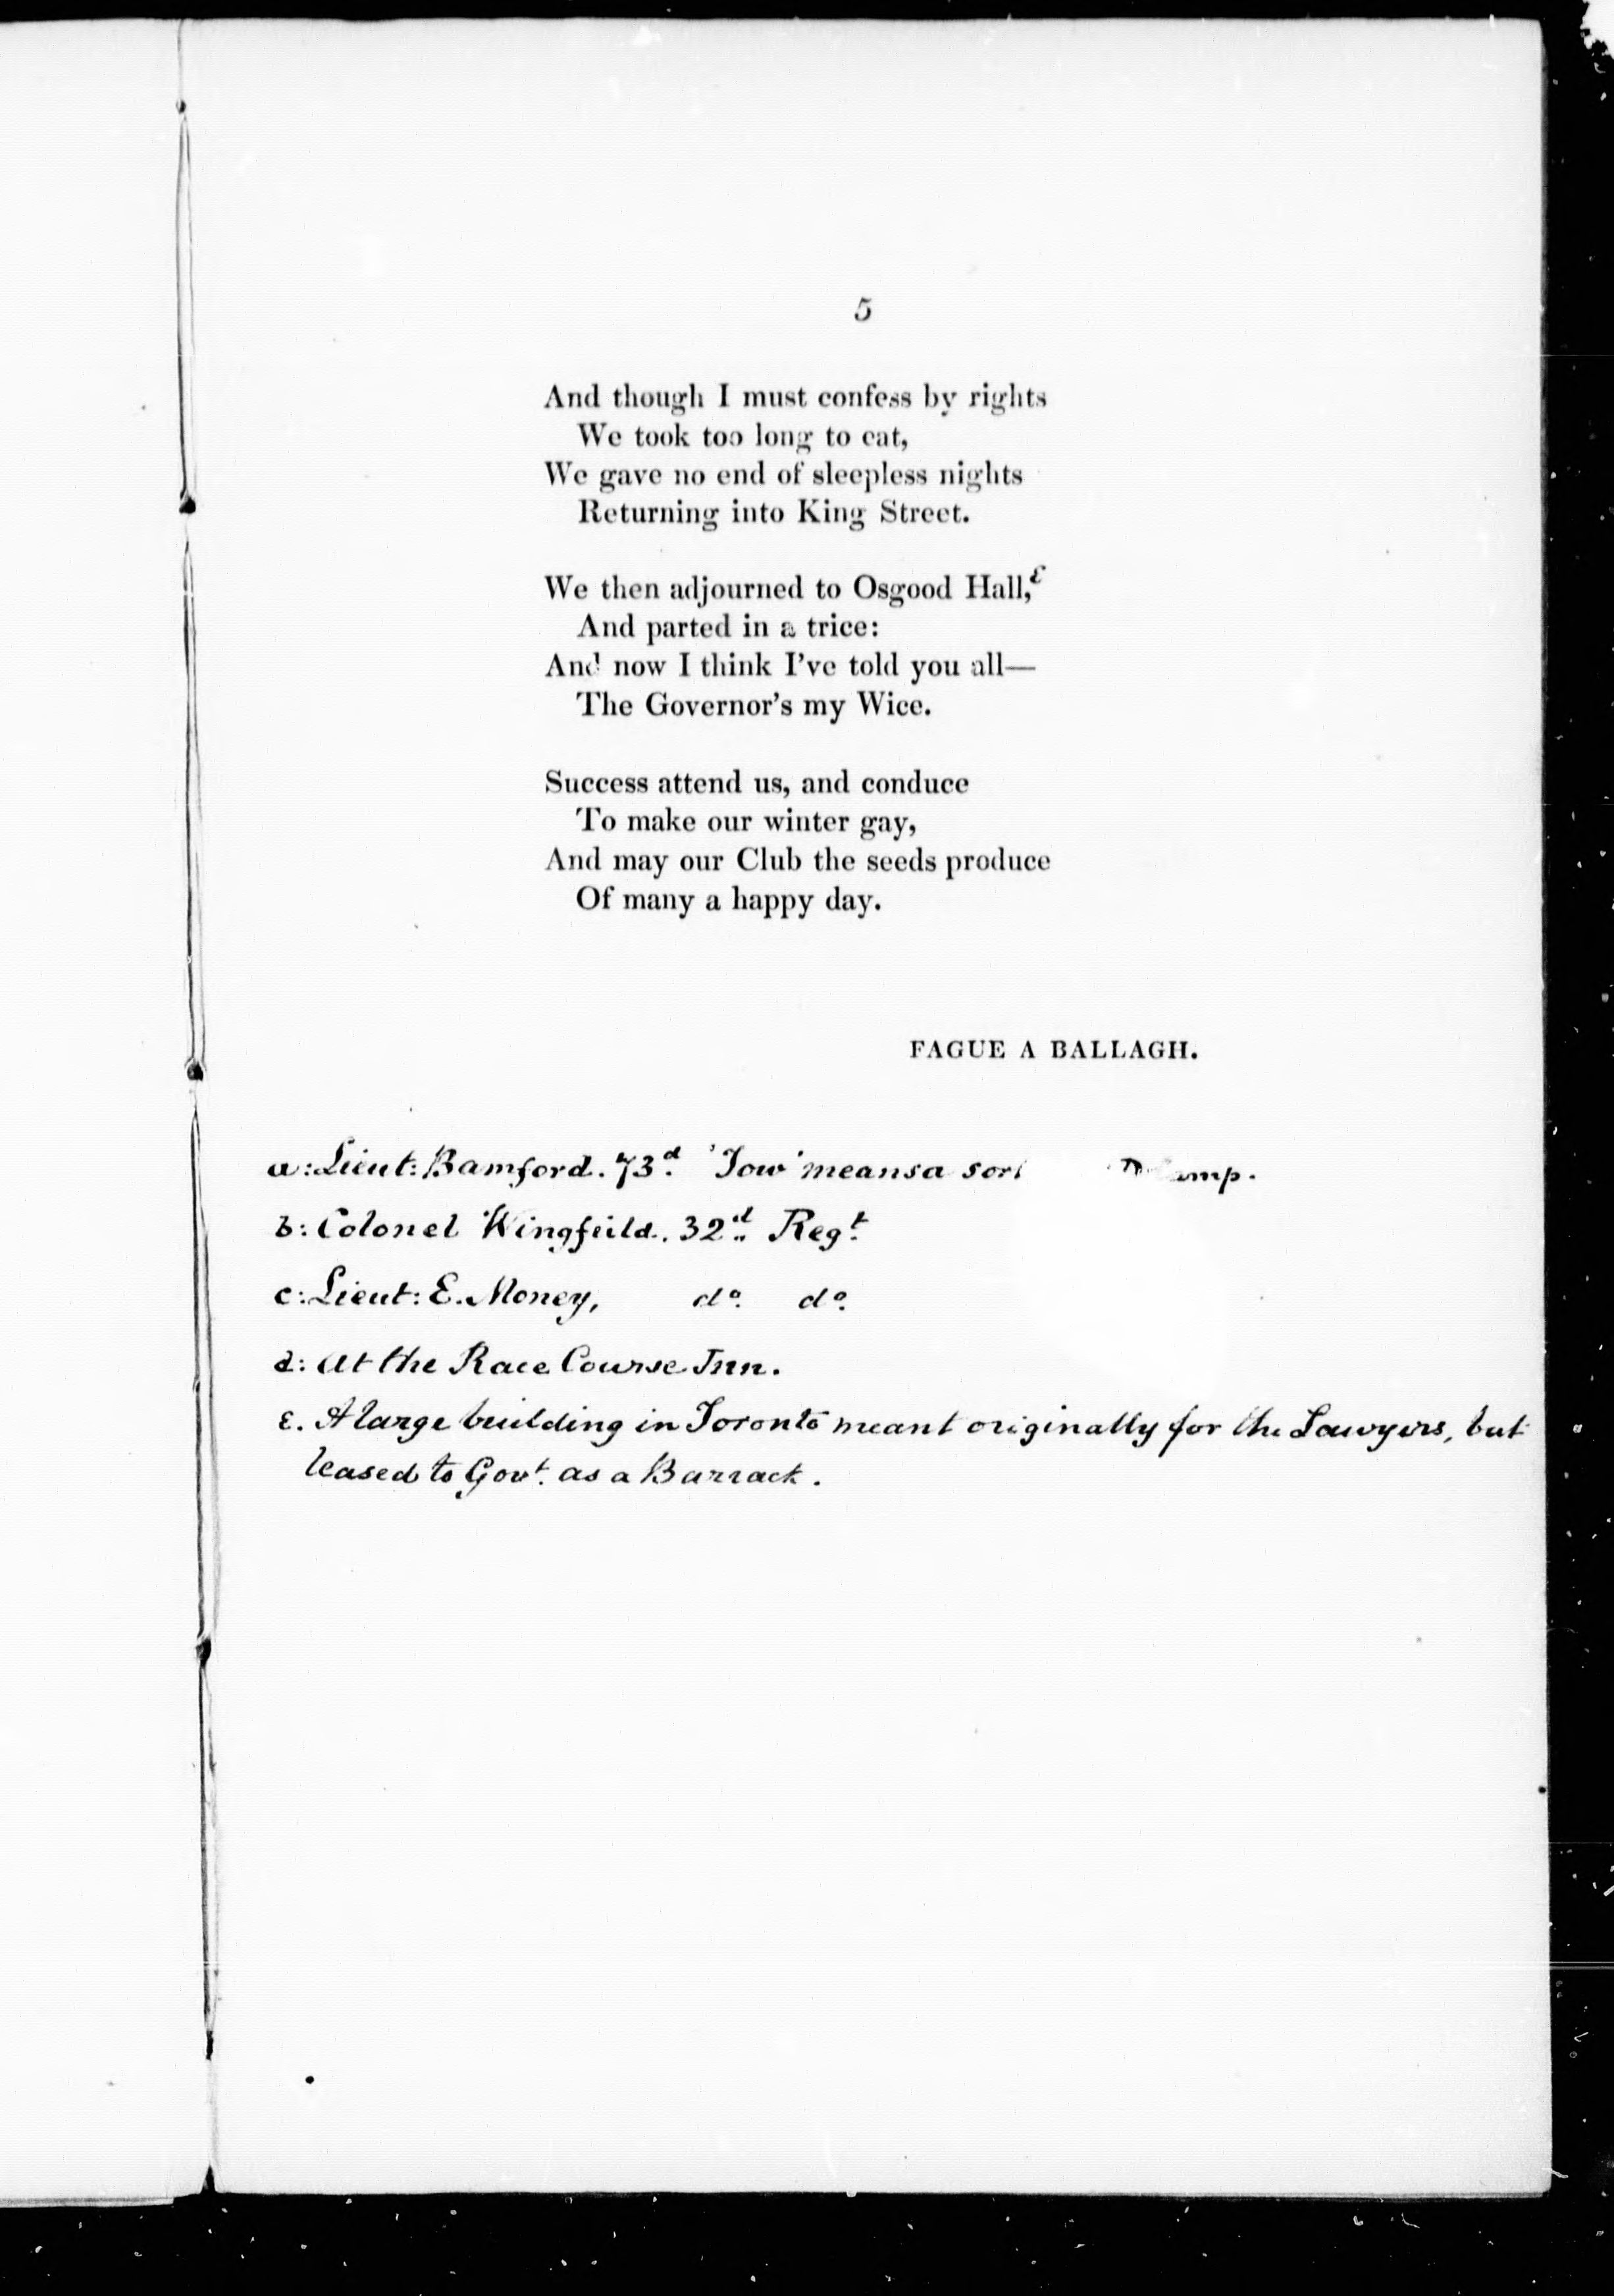 5
And though I must confess by rights
We took too long to eat,
We gave no end of sleepless nights
Returning into King Street.
We then adjourned to Osgood Hall,ε
And parted in a trice:
And now I think I've told you all—
The Governor's my Wice.
Success attend us, and conduce
To make our winter gay,
And may our Club the seeds produce
Of many a happy day.
FAGUE A BALLAGH.
a: Lieut: Bamford. 73d. 'Tow' means a sort
b: Colonel Wingfeild. 32d. Regt.
c: Lieut: E. Money, do. do.
d: At the Race Course Inn.
ε. A large building in Toronto meant originally for the Lawyers, but
leased to Govt. as a Barrack.